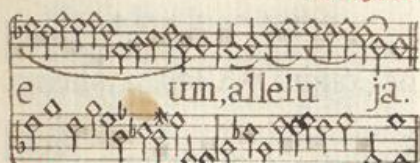 e um, allelu ja.